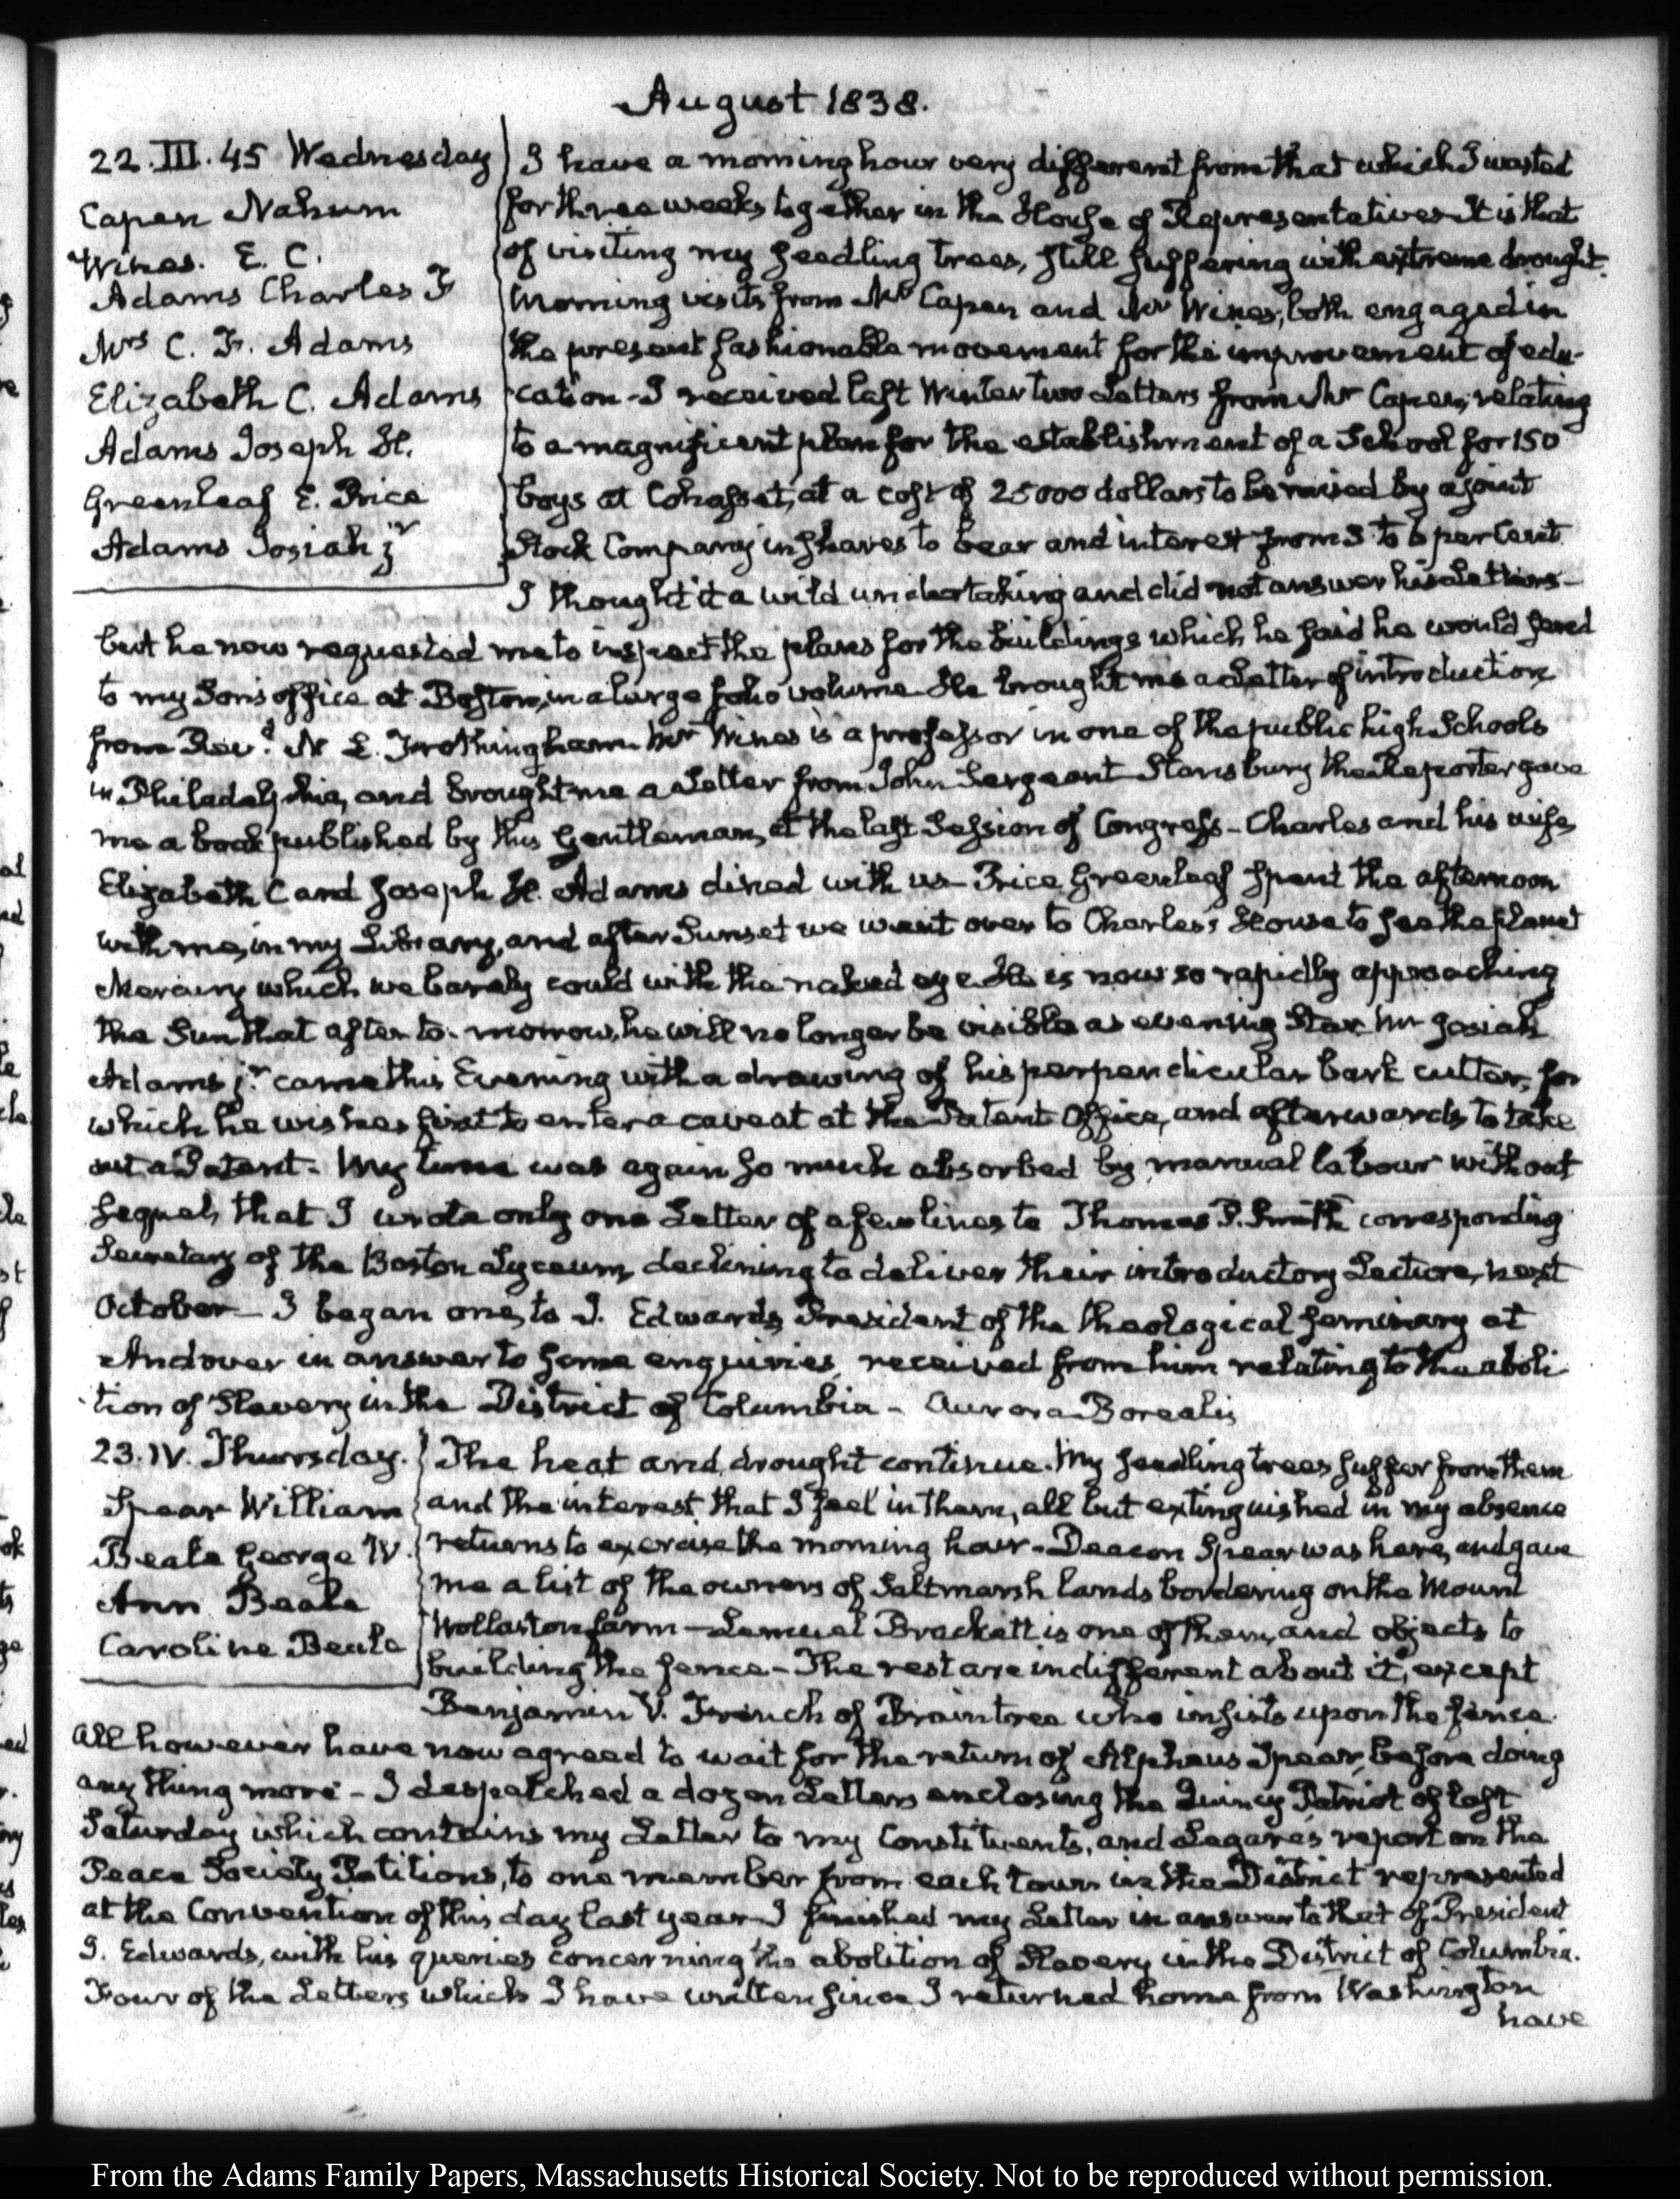 August 1838.
22. III. 45 Wednesday
Capen Nahum
Wines. E. C.
Adams Charles F
Mrs C. F. Adams
Elizabeth C. Adams
Adams Joseph H.
Greenleaf E. Price
Adams Josiah jr
I have a morning hour very different from that which I wasted
for three weeks together in the House of Representatives It is that
of visiting my seedling trees, still suffering with extreme drought.
Morning visits from Mr Capen and Mr Wines, both engaged in
the present fashionable movement for the improvement of edu-
cation - I received last Winter two Letters from Mr Capen, relating
to a magnificent plan for the establishment of a School for 150
boys at Cohasset, at a cost of 25000 dollars to be raised by a joint
Stock Company in shares to bear and interest from 5 to 6 per Cent
I thought it a wild undertaking and did not answer his Letters -
but he now requested me to inspect the plans for the buildings which he said he would send
to my Son's office at Boston, in a large folio volume. He brought me a Letter of introduction
from Revd. N L. Frothingham. Mr Wines is a professor in one of the public high Schools
in Philadelphia, and brought me a Letter from John Sergeant - Stansbury the Reporter gave
me a book published by this Gentleman, at the last Session of Congress - Charles and his wife,
Elizabeth C and Joseph H. Adams dined with us - Price Greenleaf spent the afternoon
with me, in my Library, and after Sunset we went over to Charles's House to see the planet
Mercury which we barely could with the naked eye. He is now so rapidly approaching
the Sun that after to-morrow, he will no longer be visible as evening Star. Mr Josiah
Adams jr. came this Evening with a drawing of his perpendicular bark cutter, for
which he wishes first to enter a caveat at the Patent Office, and afterwards to take
out a Patent - My time was again so much absorbed by manual labour without
sequel, that I wrote only one Letter of a few lines to Thomas P. Smith corresponding
Secretary of the Boston Lyceum, declining to deliver their introductory Lecture, next
October - I began one, to J. Edwards, President of the theological seminary at
Andover in answer to some enquiries, received from him relating to the aboli
tion of Slavery in the District of Columbia - Aurora Borealis
23. IV. Thursday.
Spear William
Beale George W.
Ann Beale
Caroline Beale
The heat and drought continue. My seedling trees suffer from them
and the interest that I feel in them, all but extinguished in my absence
returns to exercise the morning hour - Deacon Spear was here, and gave
me a list of the owners of Saltmarsh lands bordering on the Mount
Wollaston farm - Lemuel Brackett is one of them, and objects to
building the fence - The rest are indifferent about it, except
Benjamin V. French of Braintree who insists upon the fence.
All however have now agreed to wait for the return of Alpheus Spear, before doing
any thing more - I despatched a dozen Letters enclosing the Quincy Patriot of last
Saturday which contains my Letter to my Constituents, and Legare's report on the
Peace Society Petitions, to one member from each town in the District represented
at the Convention of this day last year - I finished my Letter in answer to that of President
J. Edwards, with his queries concerning the abolition of Slavery in the District of Columbia.
Four of the Letters which I have written since I returned home from Washington
have
From the Adams Family Papers, Massachusetts Historical Society. Not to be reproduced without permission.